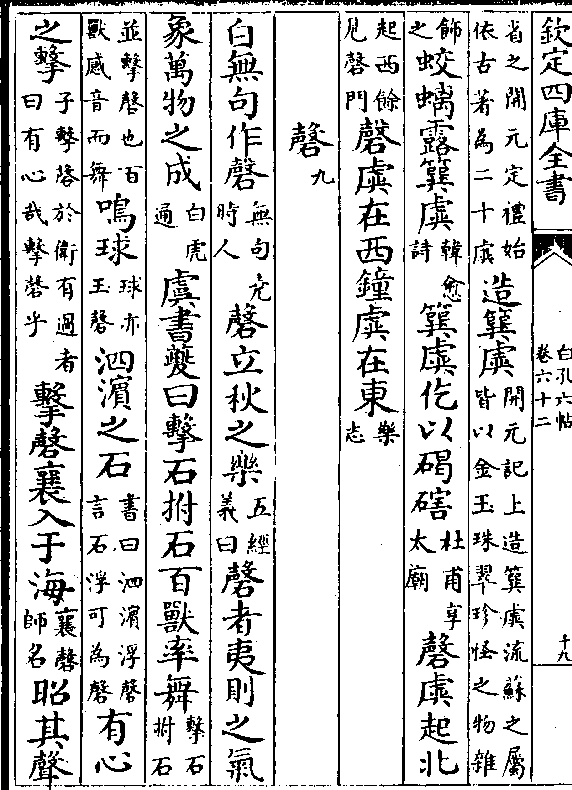 欽定四庫全書
白孔六帖
卷六十二
十九
省之開元定禮始
依古著為二十虡
造簨虡
開元記上造簨虡流蘇之屬
皆以金玉珠翠珍怪之物雜
飾
之
蛟螭露簨虡
韓愈
詩
簨虡仡以碣磍
杜甫享
太廟
磬虡起北
起西餘
見磬門
磬虡在西鐘虡在東
樂
志
磬九
白無句作磬
無句堯
時人
磬立秋之樂
五經
義曰
磬者夷則之氣
象萬物之成
白虎
通
虞書夔曰擊石拊石百獸率舞
擊石
拊石
並擊磬也百
獸感音而舞
鳴球
球亦
玉磬
泗濱之石
書曰泗濱浮磬
言石浮可為磬
有心
之擊
子擊磬於衛有過者
曰有心哉擊磬乎
擊磬襄入于海
襄磬
師名
昭其聲